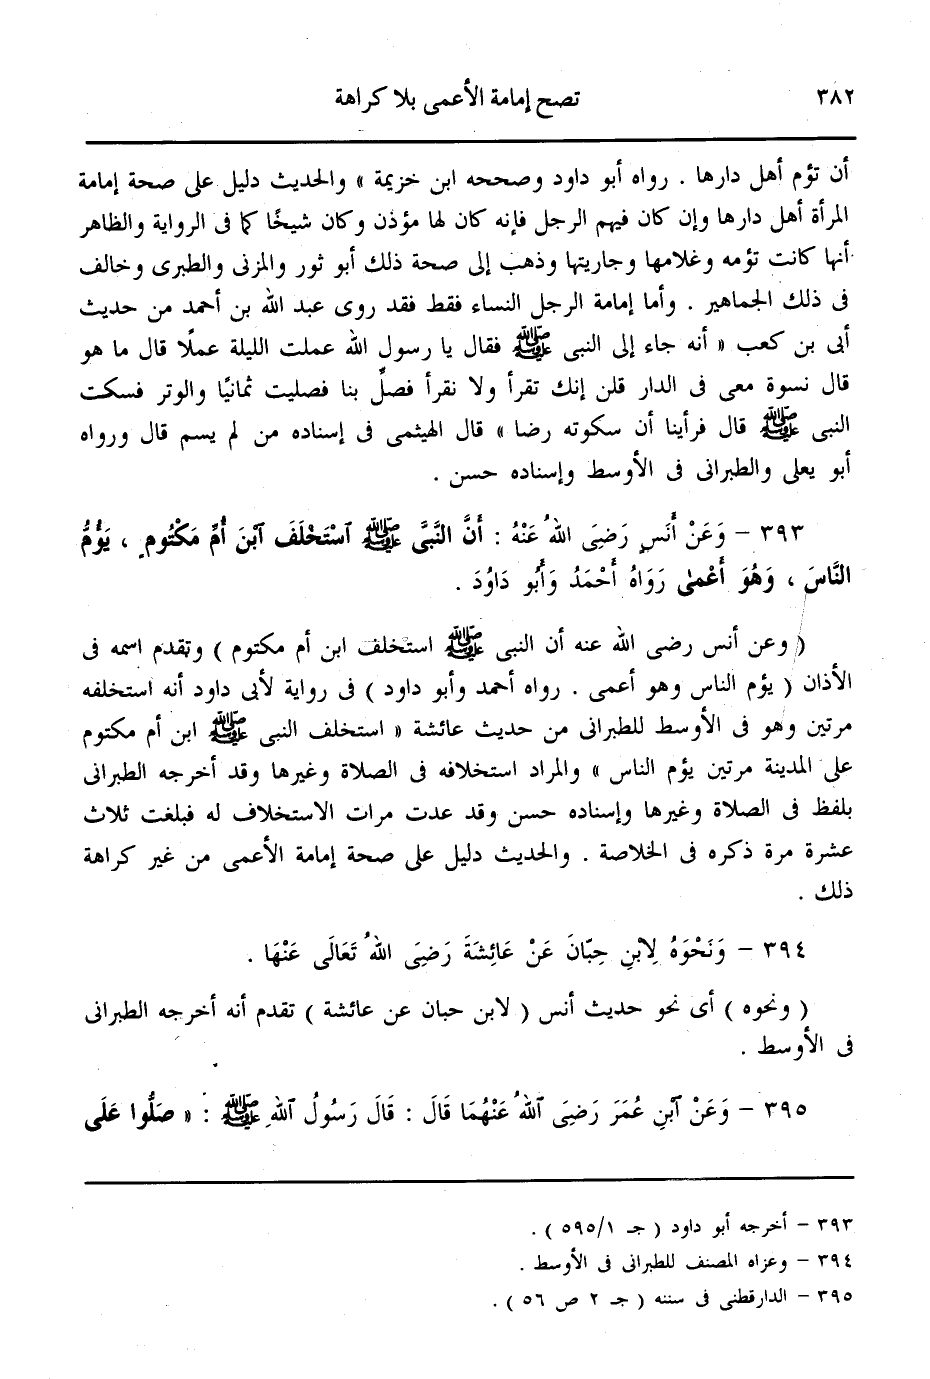 ٣٨٢ تصح إمامة الأعمى بلا كراهة
أن تؤم أهل دارها . رواه أبو داود وصححه ابن خزيمة » والحديث دليل على صحة إمامة
المرأة أهل دارها وإن كان فيهم الرجل فإنه كان لها مؤذن وكان شيخًا كما فى الرواية والظاهر
أنها كانت تؤمه وغلامها وجاريتها وذهب إلى صحة ذلك أبو ثور والمزنى والطبرى وخالف
فى ذلك الجماهير . وأما إمامة الرجل النساء فقط فقد روى عبد الله بن أحمد من حديث
أبى بن كعب « أنه جاء إلى النبى ﷺ فقال يا رسول الله عملت الليلة عملًا قال ما هو
قال نسوة معى فى الدار قلن إنك تقرأ ولا نقرأ فصلِّ بنا فصليت ثمانيًا والوتر فسكت
النبى ﷺ قال فرأينا أن سكوته رضا » قال الهيثمى فى إسناده من لم يسم قال ورواه
أبو يعلى والطبرانى فى الأوسط وإسناده حسن .
٣٩٣ – وَعَنْ أَنَسٍ رَضِىَ اللهُ عَنْهُ : أَنَّ النَّبِىَّ ﷺ ٱسْتَخْلَفَ ٱبْنَ أُمِّ مَكْتُومٍ ، يَؤُمُّ
النَّاسَ ، وَهُوَ أَعْمىٰ رَوَاهُ أَحْمَدُ وَأَبُو دَاوُدَ .
( وعن أنس رضى الله عنه أن النبى ﷺ استخلف ابن أم مكتوم ) وتقدم اسمه فى
الأذان ( يؤم الناس وهو أعمى . رواه أحمد وأبو داود ) فى رواية لأبى داود أنه استخلفه
مرتين وهو فى الأوسط للطبرانى من حديث عائشة « استخلف النبى ﷺ ابن أم مكتوم
على المدينة مرتين يؤم الناس » والمراد استخلافه فى الصلاة وغيرها وقد أخرجه الطبرانى
بلفظ فى الصلاة وغيرها وإسناده حسن وقد عدت مرات الاستخلاف له فبلغت ثلاث
عشرة مرة ذكره فى الخلاصة . والحديث دليل على صحة إمامة الأعمى من غير كراهة
ذلك .
٣٩٤ – وَنَحْوَهُ لِابنِ حِبّانَ عَنْ عَائِشَةَ رَضِىَ اللهُ تَعَالَى عَنْهَا .
( ونحوه ) أى نحو حديث أنس ( لابن حبان عن عائشة ) تقدم أنه أخرجه الطبرانى
فى الأوسط .
٣٩٥ – وَعَنْ ٱبْنِ عُمَرَ رَضِىَ ٱللهُ عَنْهُمَا قَالَ : قَالَ رَسُولُ ٱللهِ ﷺ : « صَلُّوا عَلَى
٣٩٣ – أخرجه أبو داود ( جـ ٥٩٥/١ ) .
٣٩٤ – وعزاه المصنف للطبرانى فى الأوسط .
٣٩٥ – الدارقطنى فى سننه ( جـ ٢ ص ٥٦ ) .